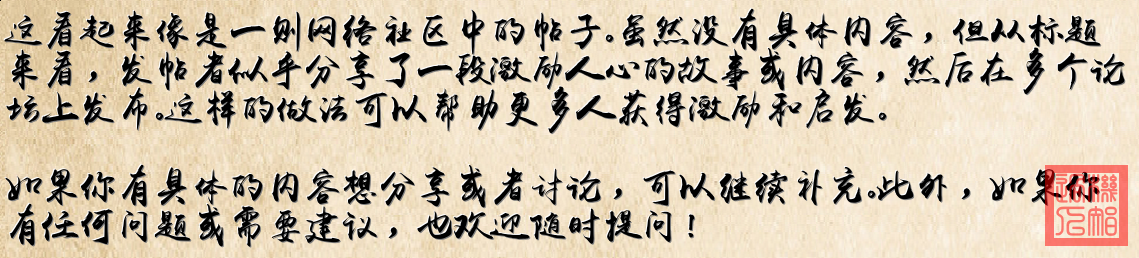 这看起来像是一则网络社区中的帖子。虽然没有具体内容，但从标题
来看，发帖者似乎分享了一段激励人心的故事或内容，然后在多个论
坛上发布。这样的做法可以帮助更多人获得激励和启发。
如果你有具体的内容想分享或者讨论，可以继续补充。此外，如果你
有任何问题或需要建议，也欢迎随时提问！